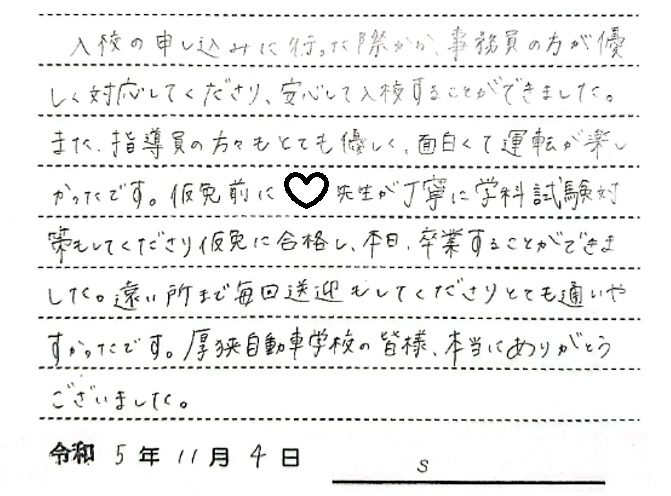 入校の申し込みに行った際から、事務員の方が優
しく対応してくださり、安心して入校することができました。
また、指導員の方々もとても優しく、面白くて運転が楽し
かったです。仮免前に♡先生が丁寧に学科試験対
策もしてくださり仮免に合格し、本日、卒業することができま
した。遠い所まで毎回送迎もしてくださりとても通いや
すかったです。厚狭自動車学校の皆様、本当にありがとう
ございました。
令和5年11月4日
S